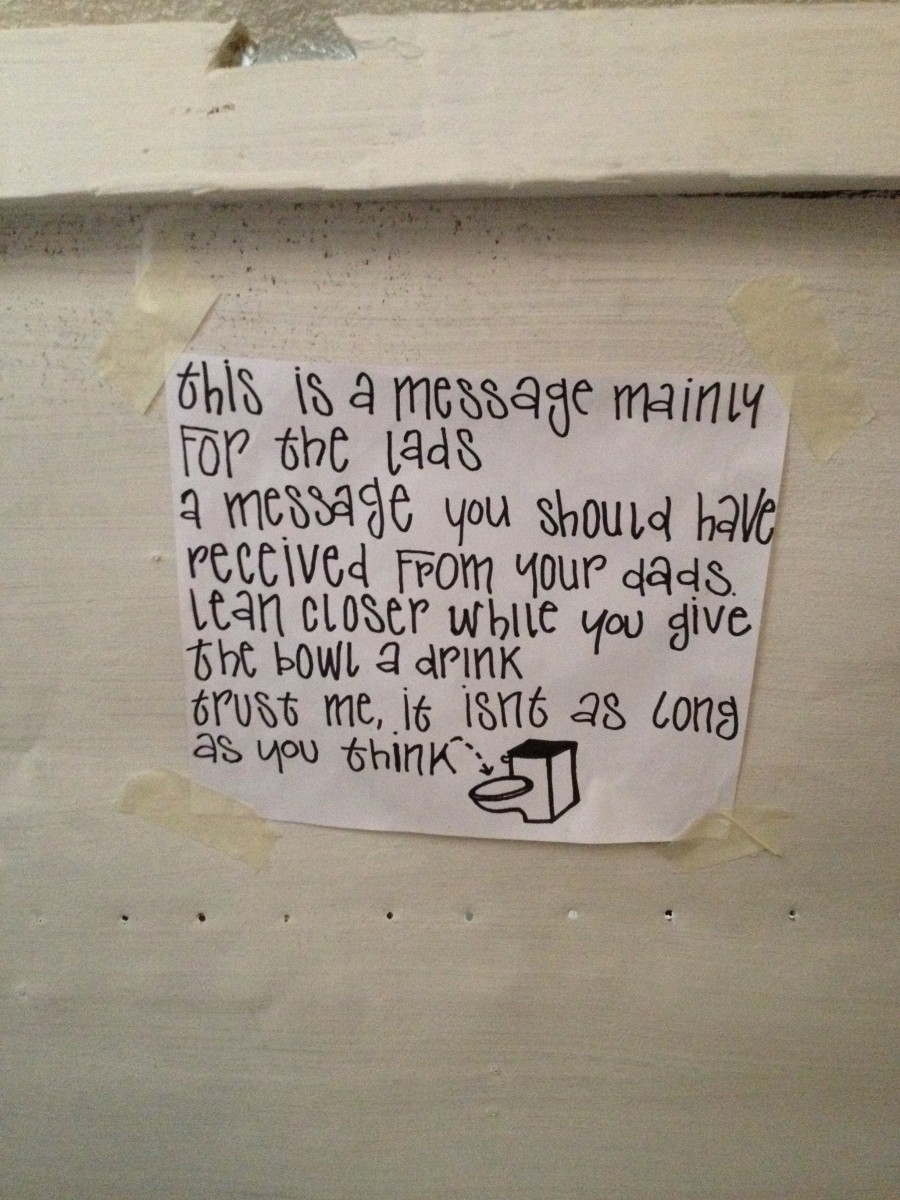 this is a message mainly
For the lads
a message you should have
received From your dads.
lean closer while you give
the bowl a drink
trust me, it isnt as long
as you think